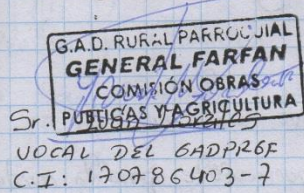 G.A.D. RURAL PARROQUIAL
GENERAL FARFAN
COMISIÓN OBRAS
PUBLICAS Y AGRICULTURA
Sr.
VOCAL DEL GADPRGF
C.I: 170786403-7